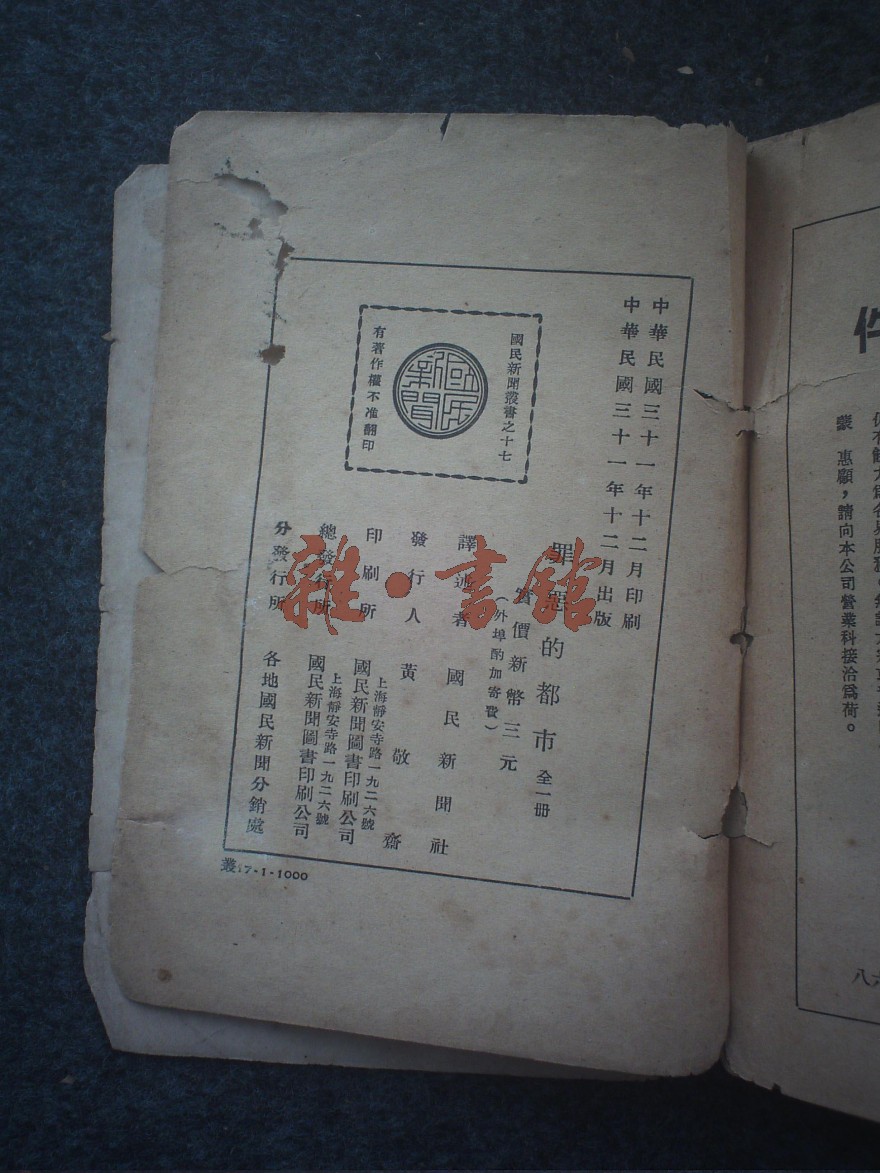 中華民國三十一年十二月印刷
中華民國三十一年十二月出版
國民新聞叢書之十七
國民新聞
有著作權不准翻印
罪惡的都市 全一冊
實價新幣三元
（外埠酌加寄費）
譯述者 國民新聞社
發行人 黃敬齋
印刷所 上海靜安寺路一九二六號
國民新聞圖書印刷公司
總發行所 上海靜安寺路一九二六號
國民新聞圖書印刷公司
分發行所 各地國民新聞分銷處
叢17-1-1000
雜·書館
件
蒙 惠顧，請向本公司營業科接洽爲荷。